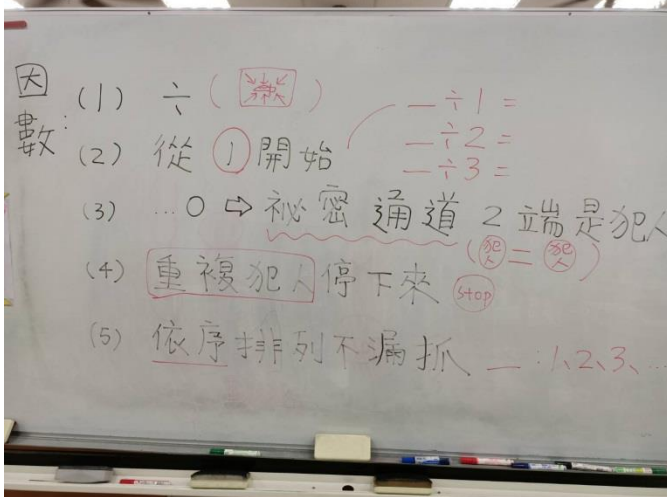 因數:
(1) ÷ ( )
_÷1=
(2) 從①開始
_÷2=
_÷3=
(3) …0⇨祕密通道2端是犯人
(犯人=犯人)
(4) 重複犯人停下來 Stop
(5) 依序排列不漏抓 _:1、2、3、…